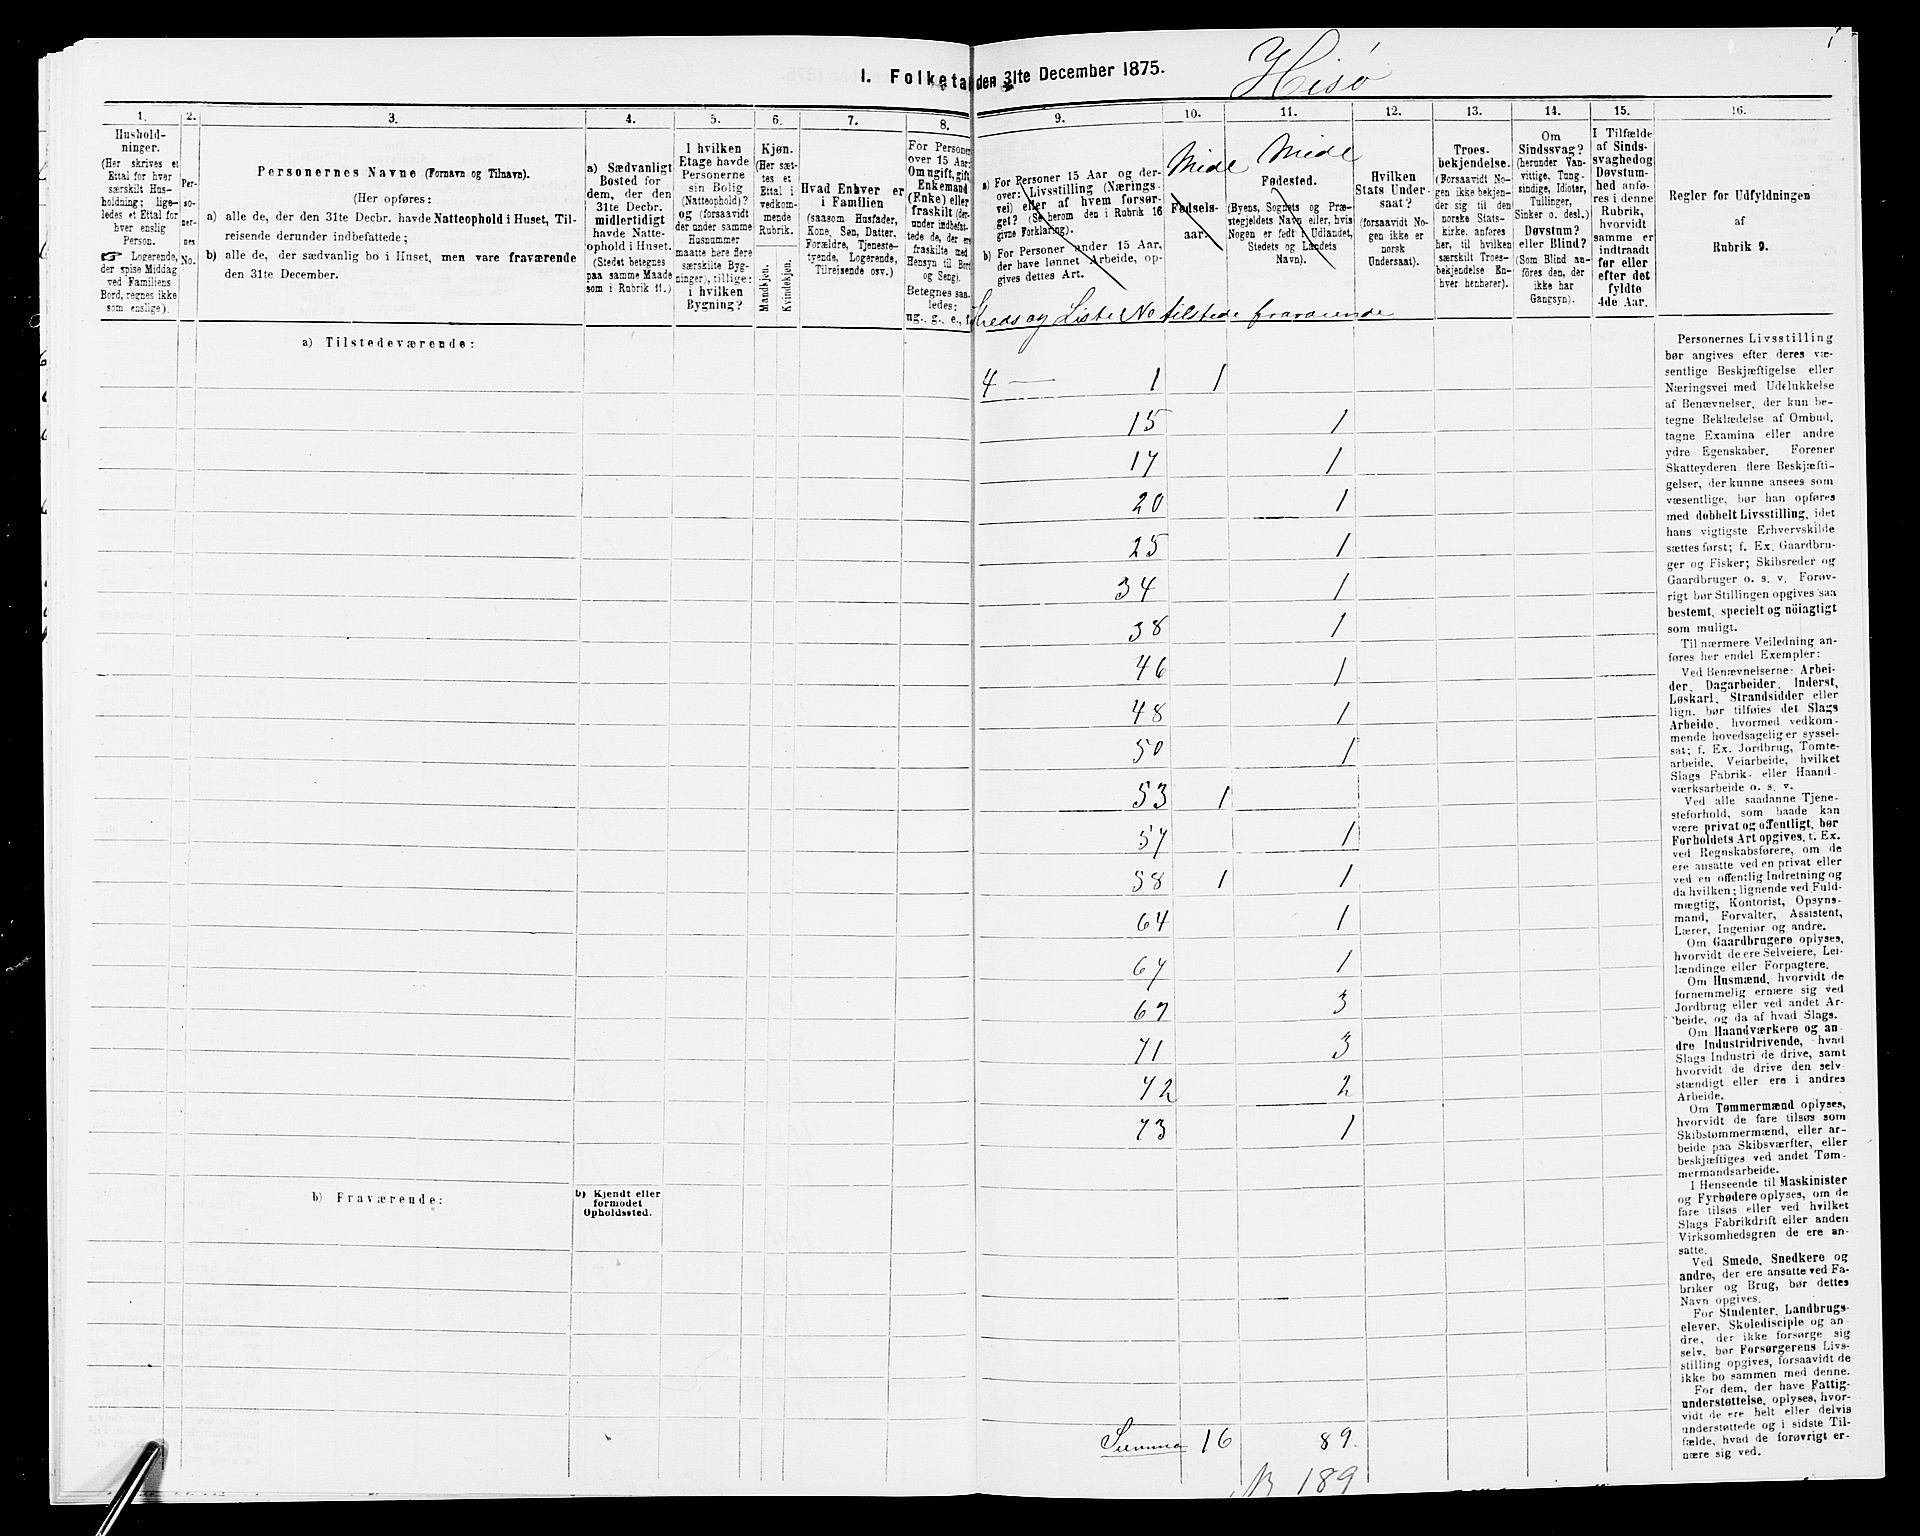 I. Folketal den 31te December 1875.
Hisø
1.
Hushold-
ninger.
(Her skrives et
Ettal for hver
særskilt Hus-
holdning; lige-
ledes et Ettal for
hver enslig
Person.
☞ Logerende,
der spise Middag
ved Familiens
Bord, regnes ikke
som enslige).
2.
Per-
so-
ner-
nes
No.
3.
Personernes Navne (Fornavn og Tilnavn).
(Her opføres:
a) alle de, der den 31te Decbr. havde Natteophold i Huset, Til-
reisende derunder indbefattede;
b) alle de, der sædvanlig bo i Huset, men vare fraværende
den 31te December.
4.
a) Sædvanligt
Bosted for
dem, der den
31te Decbr.
midlertidigt
havde Natte-
ophold i Huset.
(Stedet betegnes
paa samme Maade
som i Rubrik 11.)
5.
I hvilken
Etage havde
Personerne
sin Bolig
(Natteophold)?
og (forsaavidt
der under samme
Husnummer
maatte være flere
særskilte Byg-
ninger), tillige:
i hvilken
Bygning?
6.
Kjøn.
(Her sæt-
tes et
Ettal i
vedkom-
mende
Rubrik.
Mandkjøn.
Kvindekjøn.
7.
Hvad Enhver er
i Familien
(saasom Husfader,
Kone, Søn, Datter,
Forældre, Tjeneste-
tyende, Logerende,
Tilreisende osv.)
8.
For Personer
over 15 Aar:
Om ugift, gift,
Enkemand
(Enke) eller
fraskilt (der-
under indbefat-
tede de, der ere
fraskilte med
Hensyn til Bord
og Seng).
Betegnes saa-
ledes:
ug., g., e., f.
9.
a) For Personer 15 Aar og der-
over: Livsstilling (Nærings-
vei) eller af hvem forsør-
get? (Se herom den i Rubrik 16
givne Forklaring).
b) For Personer under 15 Aar,
der have lønnet Arbeide, op-
gives dettes Art.
10.
Midl
Fødsels-
aar.
11.
Midl
Fødested.
(Byens, Sognets og Præ-
stegjeldets Navn eller, hvis
Nogen er født i Udlandet,
Stedets og Landets
Navn).
12.
Hvilken
Stats Under-
saat?
(forsaavidt No-
gen ikke er
norsk
Undersaat).
13.
Troes-
bekjendelse.
(Forsaavidt No-
gen ikke bekjen-
der sig til den
norske Stats-
kirke, anføres
her, til hvilken
særskilt Troes-
bekjendelse En-
hver henhører).
14.
Om
Sindssvag?
(herunder Van-
vittige, Tung-
sindige, Idioter,
Tullinger,
Sinker o. desl.)
Døvstum?
eller Blind?
(Som Blind an-
føres den, der
ikke har
Gangsyn).
15.
I Tilfælde
af Sinds-
svaghed og
Døvstum-
hed anfø-
res i denne
Rubrik,
hvorvidt
samme er
indtraadt
før eller
efter det
fyldte
4de Aar.
16.
Regler for Udfyldningen
af
Rubrik 9.
Kreds og Liste No tilstede fraværende
a) Tilstedeværende:
4 — 1 1
15 1
17 1
20 1
25 1
34 1
38 1
46 1
48 1
50 1
53 1
57 1
58 1 1
64 1
67 1
69 3
71 3
72 2
73 1
b) Fraværende:
b) Kjendt eller
formodet
Opholdssted.
Summa 16 89.
189
Personernes Livsstilling
bør angives efter deres væ-
sentlige Beskjæftigelse eller
Næringsvei med Udelukkelse
af Benævnelser, der kun be-
tegne Beklædelse af Ombud,
tagne Examina eller andre
ydre Egenskaber. Forener
Skatteyderen flere Beskjæfti-
gelser, der kunne ansees som
væsentlige, bør han opføres
med dobbelt Livsstilling, idet
hans vigtigste Erhvervskilde
sættes først; f. Ex. Gaardbru-
ger og Fisker; Skibsreder og
Gaardbruger o. s. v. Forøv-
rigt bør Stillingen opgives saa
bestemt, specielt og nöiagtigt
som muligt.
Til nærmere Veiledning an-
føres her endel Exempler:
Ved Benævnelserne: Arbei-
der, Dagarbeider, Inderst,
Løskarl, Strandsidder eller
lign. bør tilføies det Slags
Arbeide, hvormed vedkom-
mende hovedsagelig er syssel-
sat; f. Ex. Jordbrug, Tomte-
arbeide, Veiarbeide, hvilket
Slags Fabrik- eller Haand-
værksarbeide o. s. v.
Ved alle saadanne Tjene-
steforhold, som baade kan
være privat og offentligt, bør
Forholdets Art opgives, f. Ex.
ved Regnskabsførere, om de
ere ansatte ved en privat eller
ved en offentlig Indretning og
da hvilken; lignende ved Fuld-
mægtig, Kontorist, Opsyns-
mand, Forvalter, Assistent,
Lærer, Ingeniør og andre.
Om Gaardbrugere oplyses,
hvorvidt de ere Selveiere, Lei-
lændinge eller Forpagtere.
Om Husmænd, hvorvidt de
fornemmelig ernære sig ved
Jordbrug eller ved andet Ar-
beide, og da af hvad Slags.
Om Haandværkere og an-
dre Industridrivende, hvad
Slags Industri de drive, samt
hvorvidt de drive den selv-
stændigt eller ere i andres
Arbeide.
Om Tømmermænd oplyses,
hvorvidt de fare tilsøs som
Skibstømmermænd, eller ar-
beide paa Skibsværfter, eller
beskjæftiges ved andet Tøm-
mermandsarbeide.
I Henseende til Maskinister
og Fyrbødere oplyses, om de
fare tilsøs eller ved hvilket
Slags Fabrikdrift eller anden
Virksomhedsgren de ere an-
satte.
Ved Smede, Snedkere og
andre, der ere ansatte ved Fa-
briker og Brug, bør dettes
Navn opgives.
For Studenter, Landbrugs-
elever, Skoledisciple og an-
dre, der ikke forsørge sig
selv, bør Forsørgerens Livs-
stilling opgives, forsaavidt de
ikke bo sammen med denne.
For dem, der have Fattig-
understøttelse, oplyses, hvor-
vidt de ere helt eller delvis
understøttede og i sidste Til-
fælde, hvad de forøvrigt er-
nære sig ved.